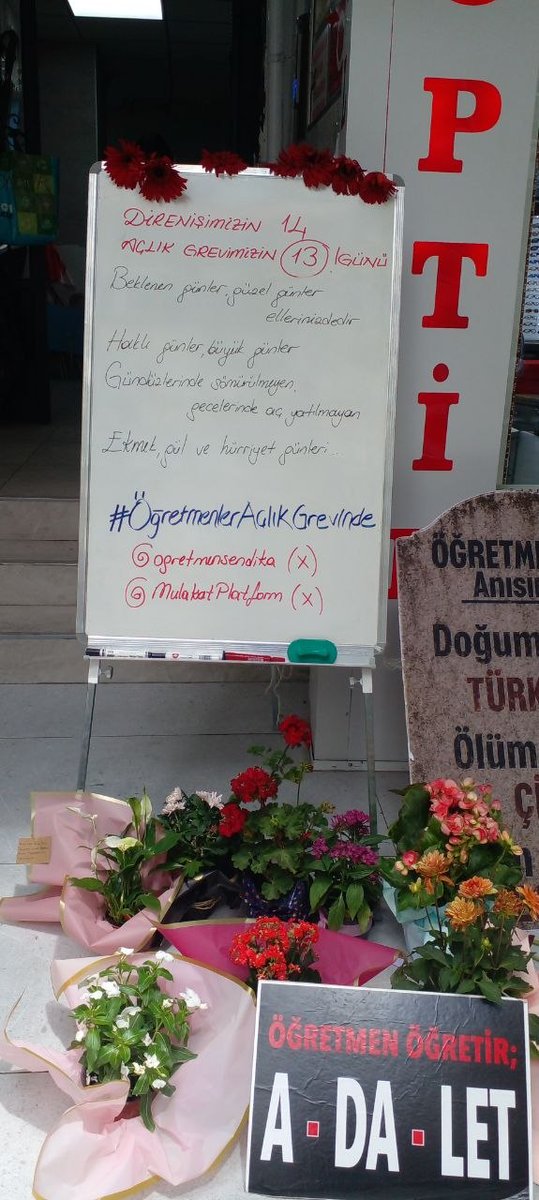 PTİ
DİRENİŞİMİZİN 14
AÇLIK GREVİMİZİN 13. GÜNÜ
Beklenen günler, güzel günler
ellerinizdedir
Haklı günler, büyük günler
Gündüzlerinde sömürülmeyen,
gecelerinde aç yatılmayan
Ekmek, gül ve hürriyet günleri..
#ÖğretmenlerAçlıkGrevinde
@ogretmensendika (X)
@MulakatPlatform (X)
ÖĞRETM
Anısın
Doğum
TÜRK
Ölüm
Çİ
ÖĞRETMEN ÖĞRETİR;
A·DA·LET